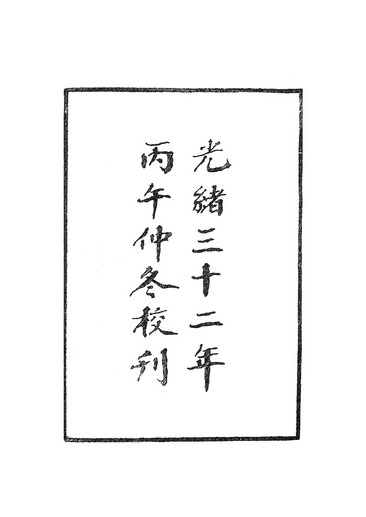 光緒三十二年
丙午仲冬校刊